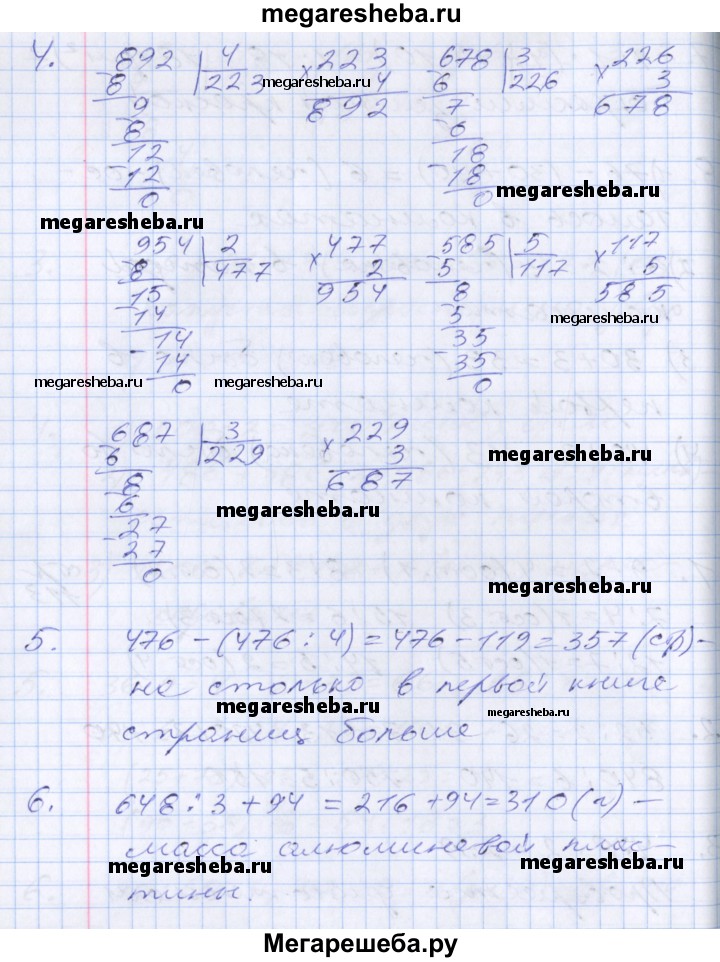 megaresheba.ru
4. 892 | 4 × 223 678 | 3 × 226
8 223 megaresheba.ru 4 6 226 3
9 892 7 678
8 6
12 18
12 18 megaresheba.ru
0 0
megaresheba.ru
954 | 2 × 477 585 | 5 × 117
8 477 2 5 117 5
15 954 8 585
14 5 megaresheba.ru
14 35
14 35
megaresheba.ru 0 megaresheba.ru 0
687 | 3 × 229
6 229 3 megaresheba.ru
8 687
6 megaresheba.ru
27
27
0 megaresheba.ru
5. 476 - (476 : 4) = 476 - 119 = 357 (ср) -
megaresheba.ru
на столько в первой книге
megaresheba.ru megaresheba.ru
страниц больше
6. 648 : 3 + 94 = 216 + 94 = 310 (г) —
масса алюминевой плас-
megaresheba.ru megaresheba.ru
тины.
Мегарешеба.ру